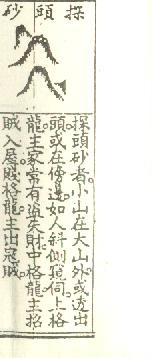 探頭砂
探頭砂者小山在大山外或透出
頭或在傍邊如人斜側窺伺上格
龍主家常有盜失財中格龍主招
賊入屋賤格龍主出冦賊